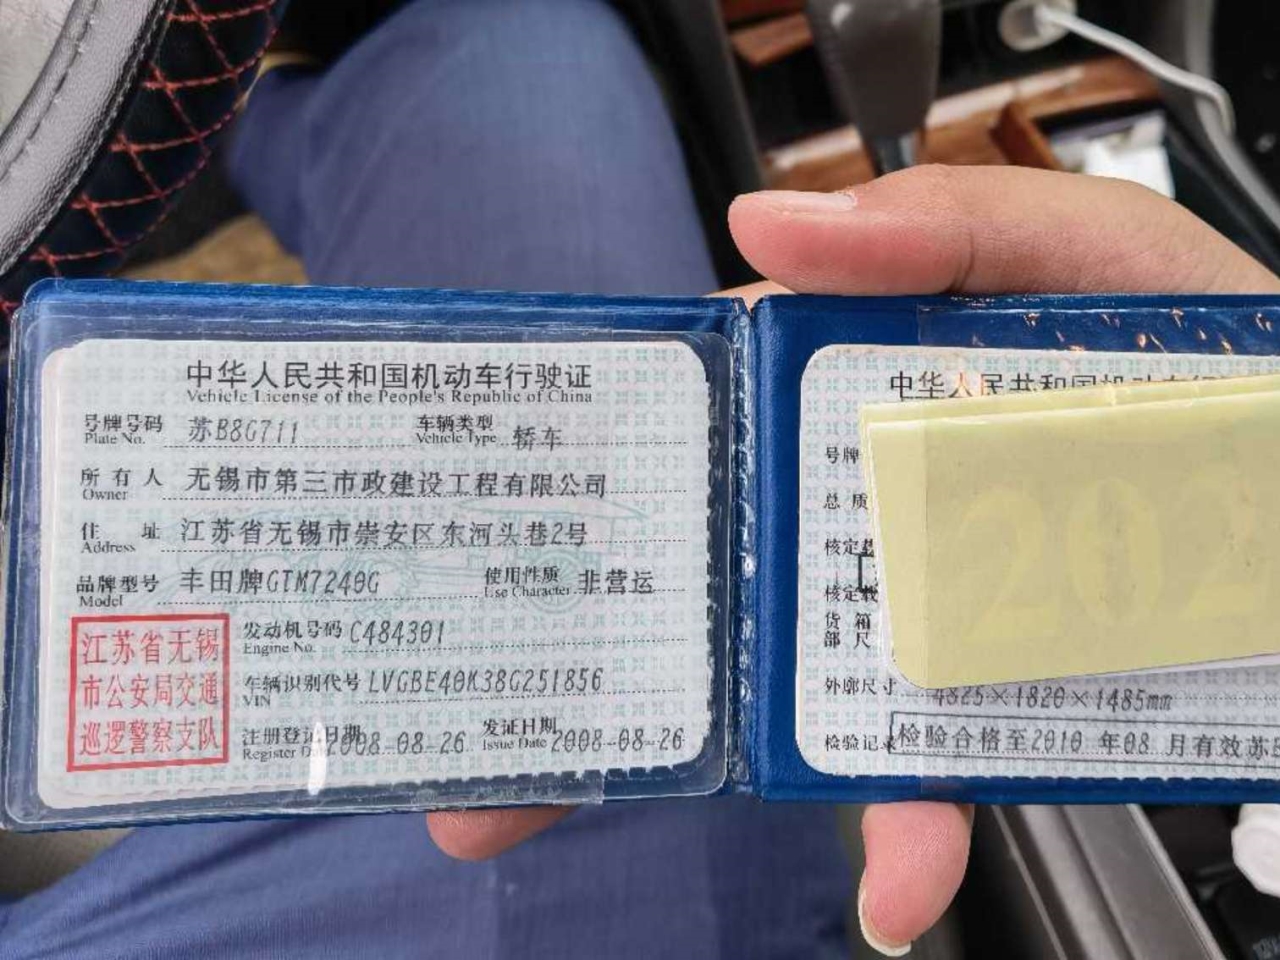 中华人民共和国机动车行驶证
Vehicle License of the People's Republic of China
号牌号码 苏B8G711 车辆类型 轿车
Plate No. Vehicle Type
所有人 无锡市第三市政建设工程有限公司
Owner
住址 江苏省无锡市崇安区东河头巷2号
Address
品牌型号 丰田牌GTM7240G 使用性质 非营运
Model Use Character
发动机号码 C484301
Engine No.
车辆识别代号 LVGBE40K38G251856
VIN
注册登记日期 2008-08-26 发证日期 2008-08-26
Register D Issue Date
江苏省无锡
市公安局交通
巡逻警察支队
中华人民共和国机动车行
号牌
总质
核定
核定载
货箱
部尺
外廓尺寸 4825×1820×1485mm
检验记录 检验合格至2010年08月有效苏
202